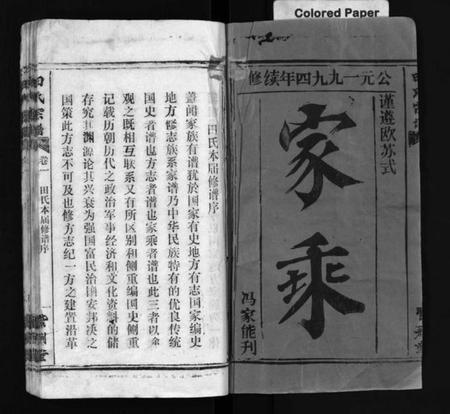 Colored Paper
公元一九九四年续修
谨遵欧苏式
家乘
冯家能刊
田氏本届修谱序
盖闻家族有谱犹於国家有史地方有志国家编史
地方修志族系家谱乃中华民族特有的优良传统
国史者谱也方志者谱也家乘者谱也此三者以余
观之既相互联系又有所区别和侧重编国史侧重
记载历朝历代之政治军事经济和文化资料的储
存究其渊源论其兴衰为强国富民治国安邦决之
国策此方志不可及也修方志纪一方之建置沿革
田氏宗谱
卷一
田氏本届修谱序